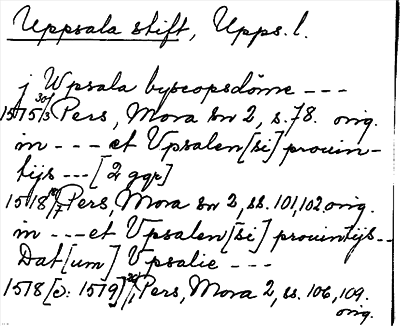 Uppsala stift, Upps. l.
j Wpsala byscopsdöme ---
1575 30/3 Pers, Mora sn 2, s. 78. orig.
in --- et Vpsalen[si] prouin-
tijs --- [2 ggr]
1518 10/7 Pers, Mora sn 2, ss. 101, 102 orig.
in --- et Vpsalen[si] prouintijs --
Dat[um] Vpsalie ---
1518 [ɔ: 1519] 20/1 Pers, Mora 2, ss. 106, 109.
orig.